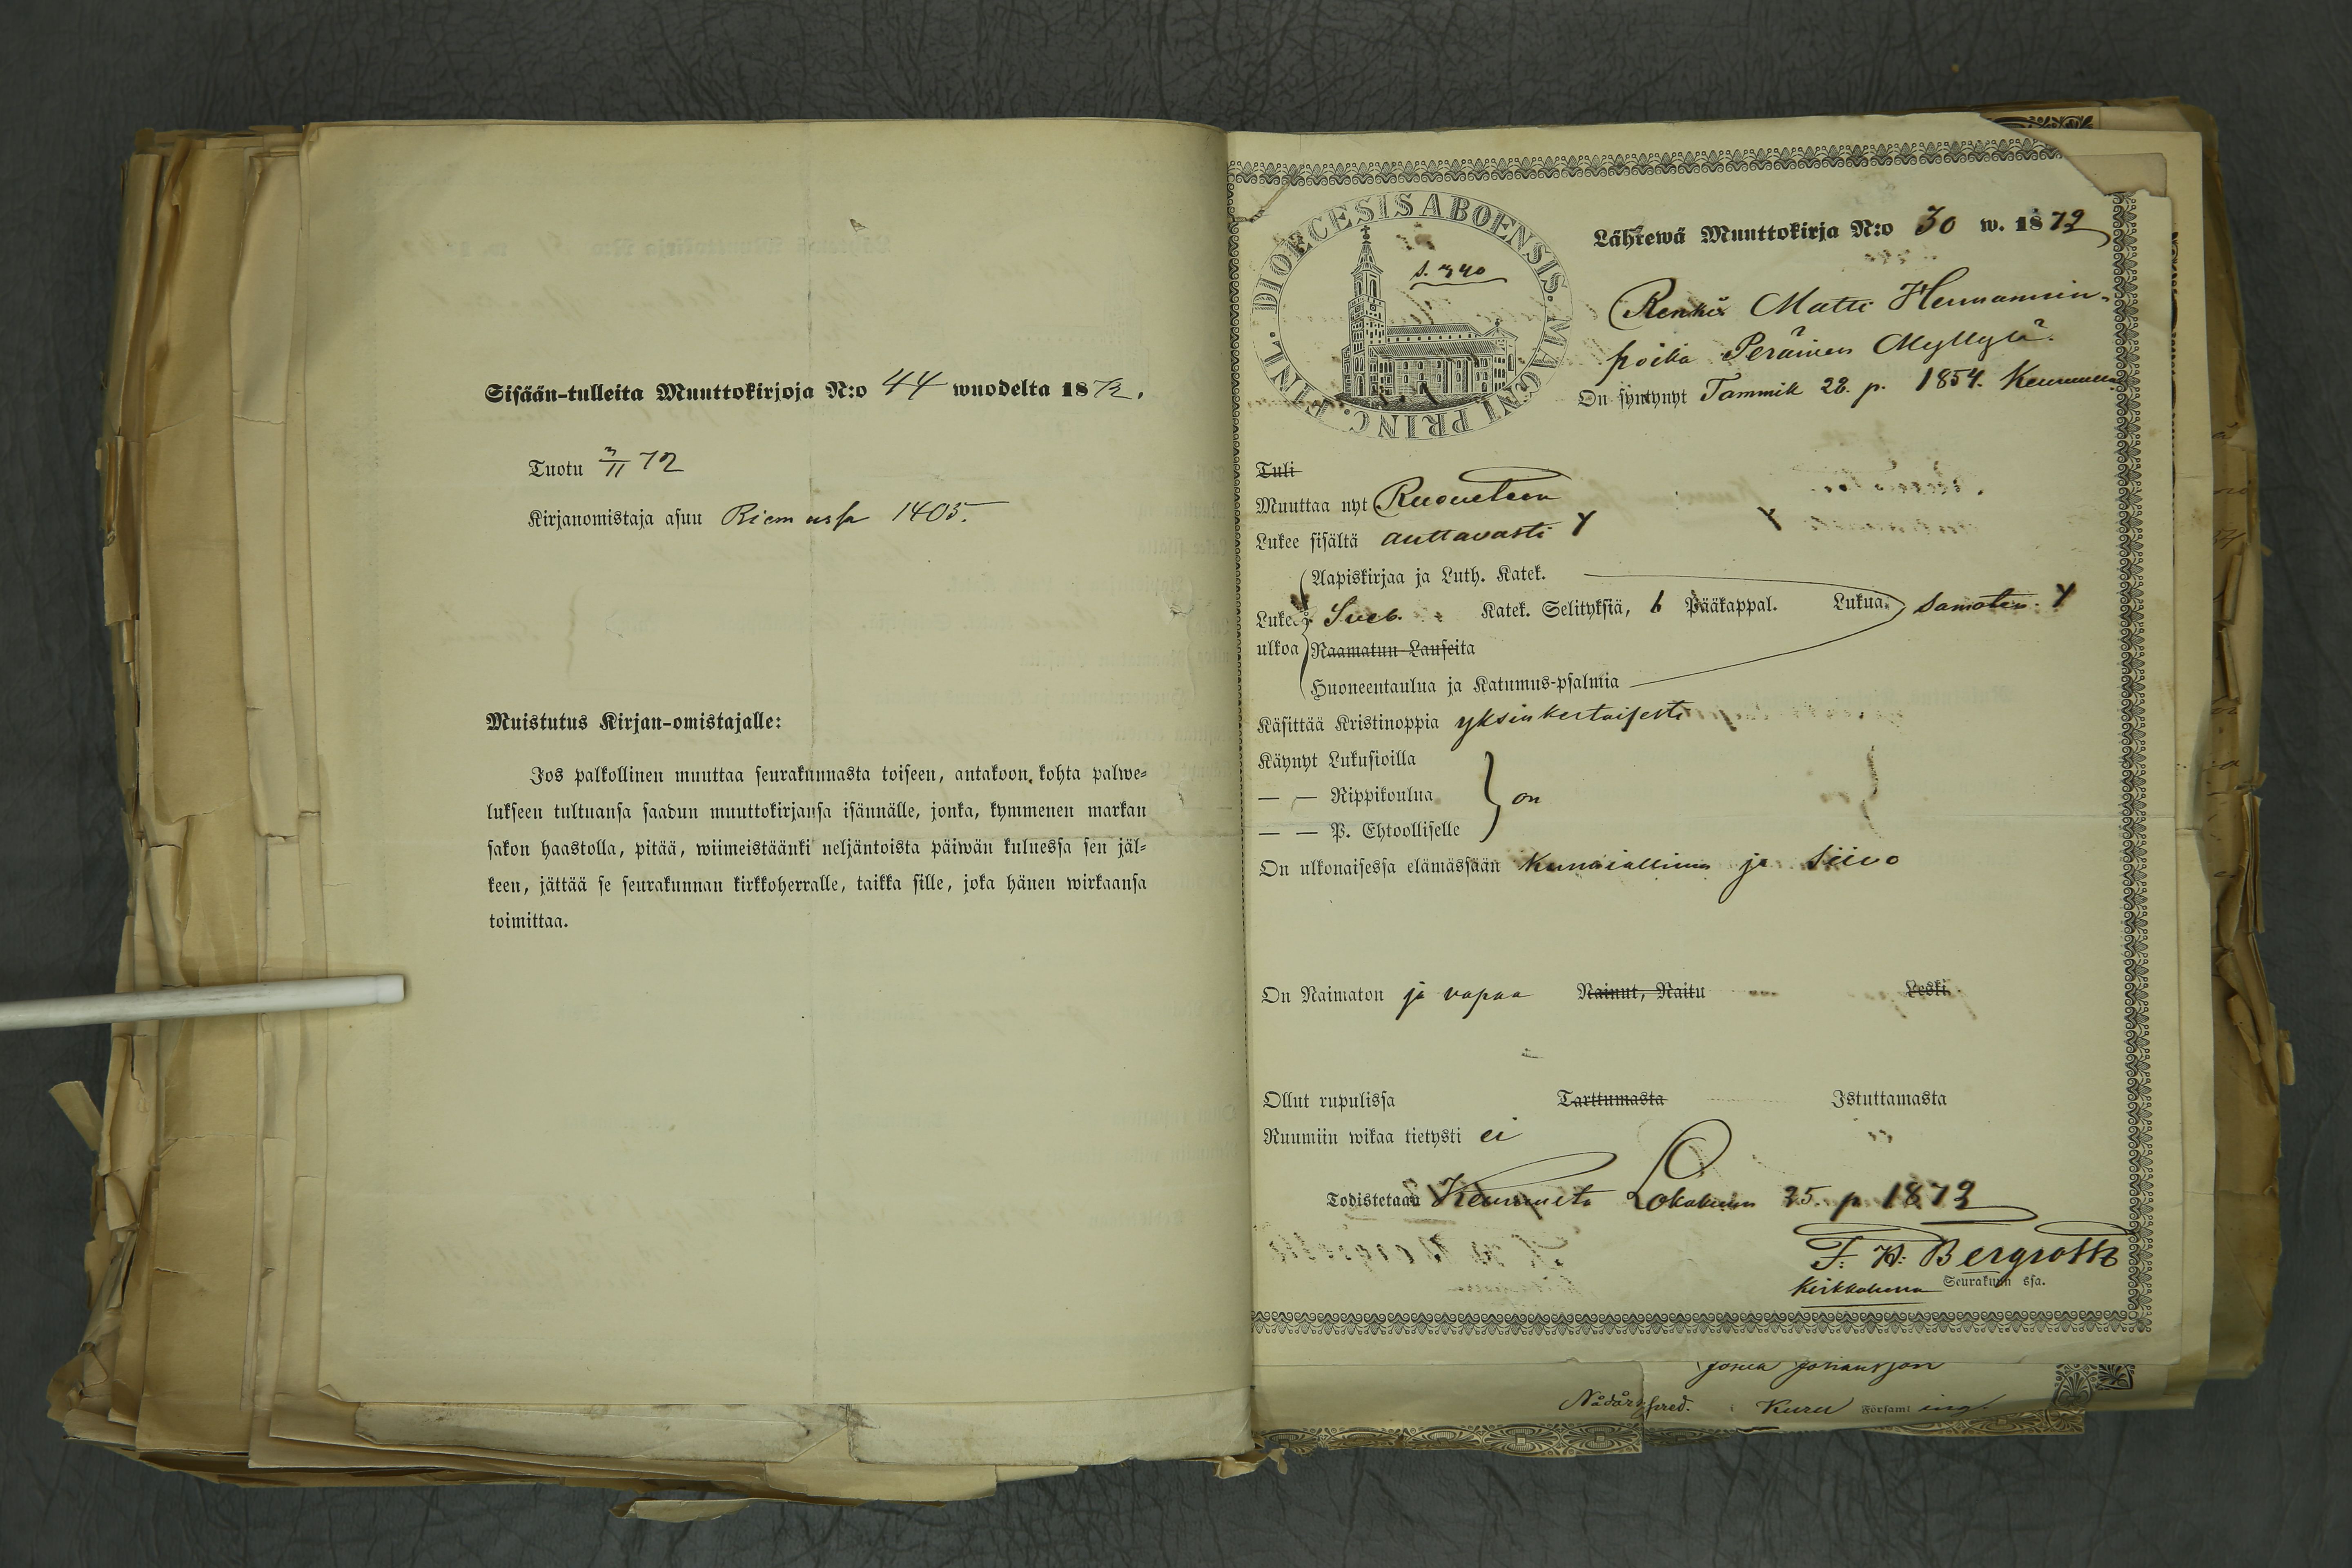 Sisään-tulleita Muuttokirjoja N:o 44 wuodelta 1872.
Tuotu 3/11 72
Kirjanomistaja asuu Riemussa 1405.
Muistutus Kirjan-omistajalle:
Jos palkollinen muuttaa seurakunnasta toiseen, antakoon kohta palwe=
lukseen tultuansa saadun muuttokirjansa isännälle, jonka, kymmenen markan
sakon haastolla, pitää, wiimeistäänki neljäntoista päiwän kuluessa sen jäl=
keen, jättää se seurakunnan kirkkoherralle, taikka sille, joka hänen wirkaansa
toimittaa.
FINL. DIOECESIS ABOENSIS. MAGNI PRINC.
s. 340
Lähtewä Muuttokirja N:o 30 w. 1872
Renki Matti Hermannin-
poika Peräinen Myllylä.
On syntynyt Tammik 28. p. 1854. Keuruulla
Tuli
Muuttaa nyt Ruoweteen
Lukee sisältä auttavasti Y
Aapiskirjaa ja Luth. Katek.
Lukee ulkoa Sveb. Katek. Selityksiä, 6 Pääkappal. Lukua. samaten. Y
Raamatun Lauseita
Huoneentaulua ja Katumus-psalmia
Käsittää Kristinoppia yksinkertaisesti
Käynyt Lukusioilla
— — Rippikoulua } on
— — P. Ehtoolliselle
On ulkonaisessa elämässään kunniallinen ja siivo
On Naimaton ja vapaa Nainut, Naitu Leski
Ollut rupulissa Tarttumasta Istuttamasta
Ruumiin wikaa tietysti ei
Todistetaan Keuruulta Lokakuun 25. p. 1872
F. W. Bergroth
Kirkkoherra Seurakunn ssa.
Johansson
Nådårspred. i Kuru Församl ing.